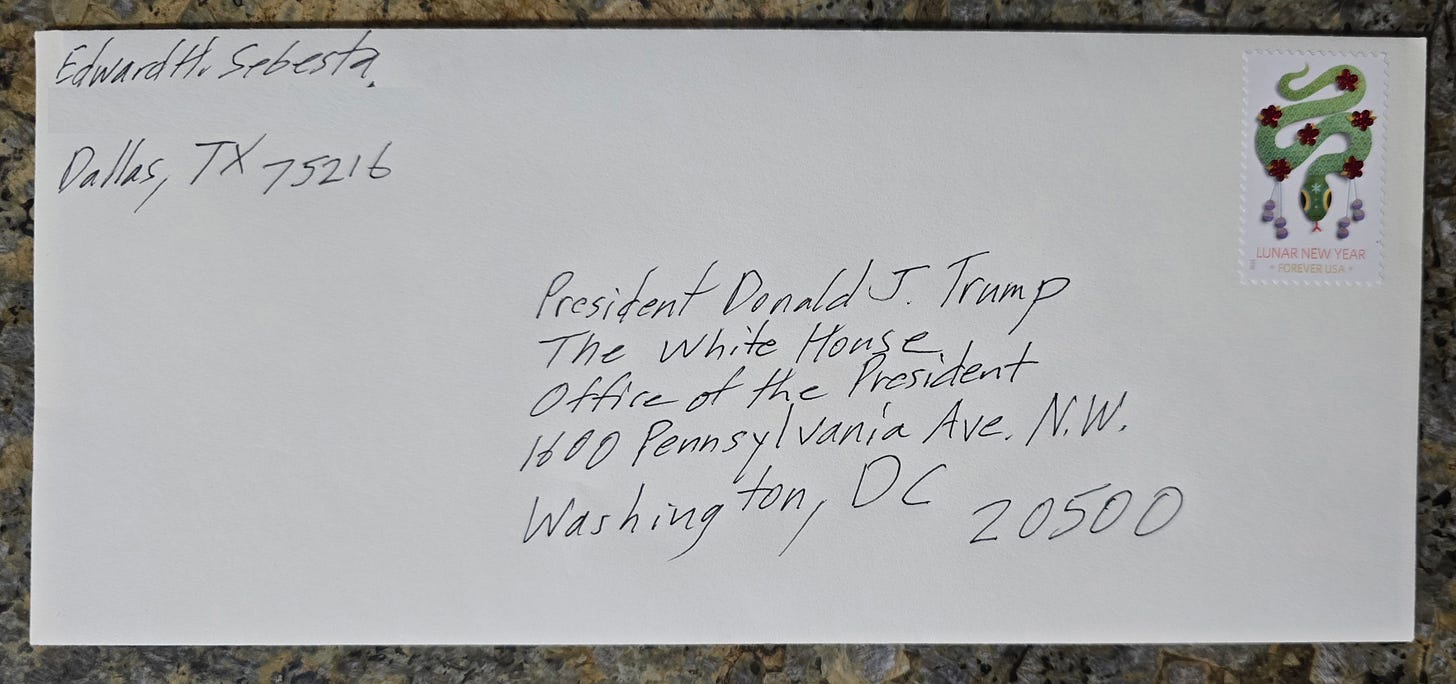 Edward H. Sebesta
Dallas, TX 75216
LUNAR NEW YEAR
FOREVER USA
President Donald J. Trump
The White House
Office of the President
1600 Pennsylvania Ave. N.W.
Washington, DC 20500